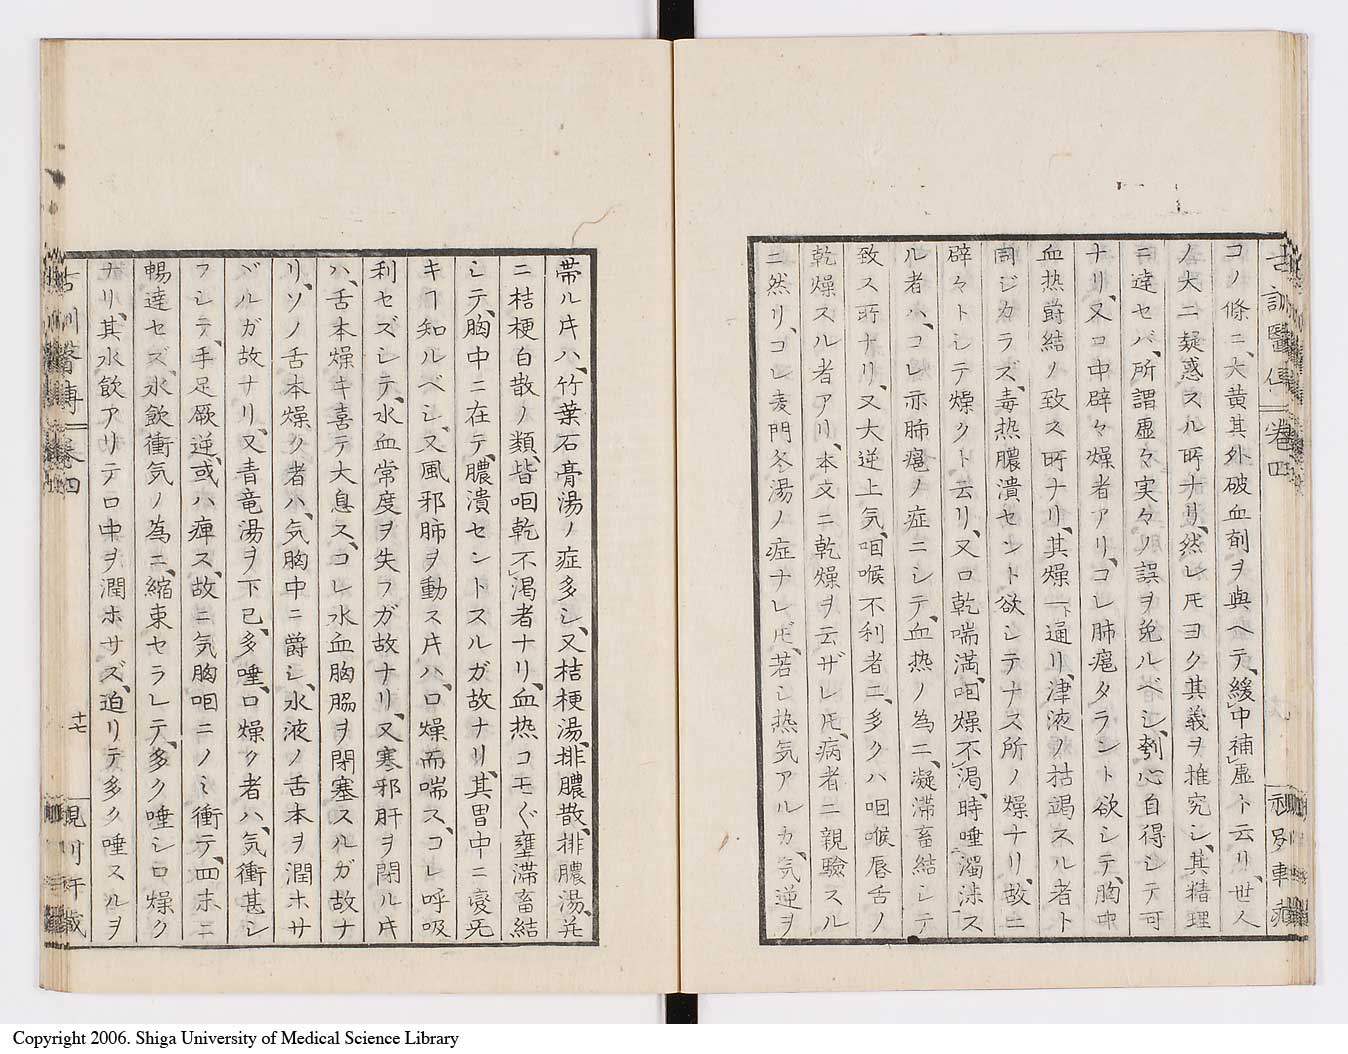 コノ條ニ、大黄其外破血剤ヲ與ヘテ、緩中補虚ト云リ、世人
ノ大ニ疑惑スル所ナリ、然レ𪜈ヨク其義ヲ推究シ、其精理
ニ達セバ、所謂虚々実々ノ誤ヲ免ルベシ、刳心自得シテ可
ナリ、又口中辟々燥者アリ、コレ肺癰タラント欲シテ、胸中
血热爵結ノ致ス所ナリ、其燥一下通リ、津液ノ枯竭スル者ト
同ジカラズ、毒热膿潰セント欲シテナス所ノ燥ナリ、故ニ
辟々トシテ燥クト云リ、又口乾喘満、咽燥不渇、時唾濁沫ス
ル者ハ、コレ亦肺癰ノ症ニシテ、血热ノ為ニ、凝滞畜結シテ
致ス所ナリ、又大逆上気、咽喉不利者ニ、多クハ咽喉唇舌ノ
乾燥スル者アリ、本文ニ乾燥ヲ云ザレ𪜈、病者ニ親験スル
ニ然リ、コレ麦門冬湯ノ症ナレ𪜈、若シ热気アルカ、気逆ヲ
古訓醫傳 卷四
帯ル片ハ、竹葉石膏湯ノ症多シ、又桔梗湯、排膿散、排膿湯、并
ニ桔梗白散ノ類、皆咽乾不渇者ナリ、血热コモ〲壅滞畜結
シテ、胸中ニ在テ、膿潰セントスルガ故ナリ、其胃中ニ豪无
キヿ知ルベシ、又風邪肺ヲ動ス片ハ、口燥而喘ス、コレ呼吸
利セズシテ、水血常度ヲ失フガ故ナリ、又寒邪肝ヲ閉ル片
ハ、舌本燥キ喜テ大息ス、コレ水血胸脇ヲ閉塞スルガ故ナ
リ、ソノ舌本燥ク者ハ、気胸中ニ爵シ、水液ノ舌本ヲ潤ホサ
ザルガ故ナリ、又青竜湯ヲ下已、多唾、口燥ク者ハ、気衝甚シ
フシテ、手足厥逆、或ハ痺ス、故ニ気胸咽ニノミ衝テ、四末ニ
暢達セズ、水飲衝気ノ為ニ、縮束セラレテ、多ク唾シ口燥ク
ナリ、其水飲アリテ口中ヲ潤ホサズ、迫リテ多ク唾スルヲ
古訓醫傳 卷四
十七
Copyright 2006. Shiga University of Medical Science Library